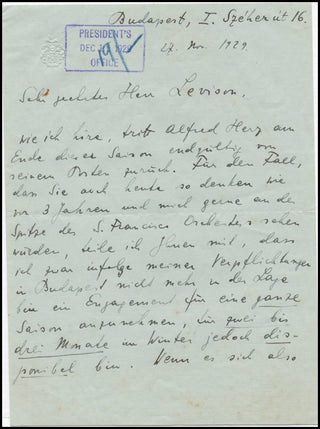 Budapest, I. Széher út 16.
PRESIDENT'S
DEC 1929
OFFICE
27. Nov. 1929.
Sehr geehrter Herr Levison.
wie ich höre, tritt Alfred Herz am
Ende dieser Saison endgültig von
seinem Posten zurück. Für den Fall,
dass Sie auch heute so denken wie
vor 3 Jahren und mich gerne an der
Spitze des S. Francisco Orchesters sehen
würden, teile ich Ihnen mit, dass
ich zwar infolge meiner Verpflichtungen
in Budapest nicht mehr in der Lage
bin ein Engagement für eine ganze
Saison anzunehmen, für zwei bis
drei Monate im Winter jedoch dis-
ponibel bin. Wenn es sich also